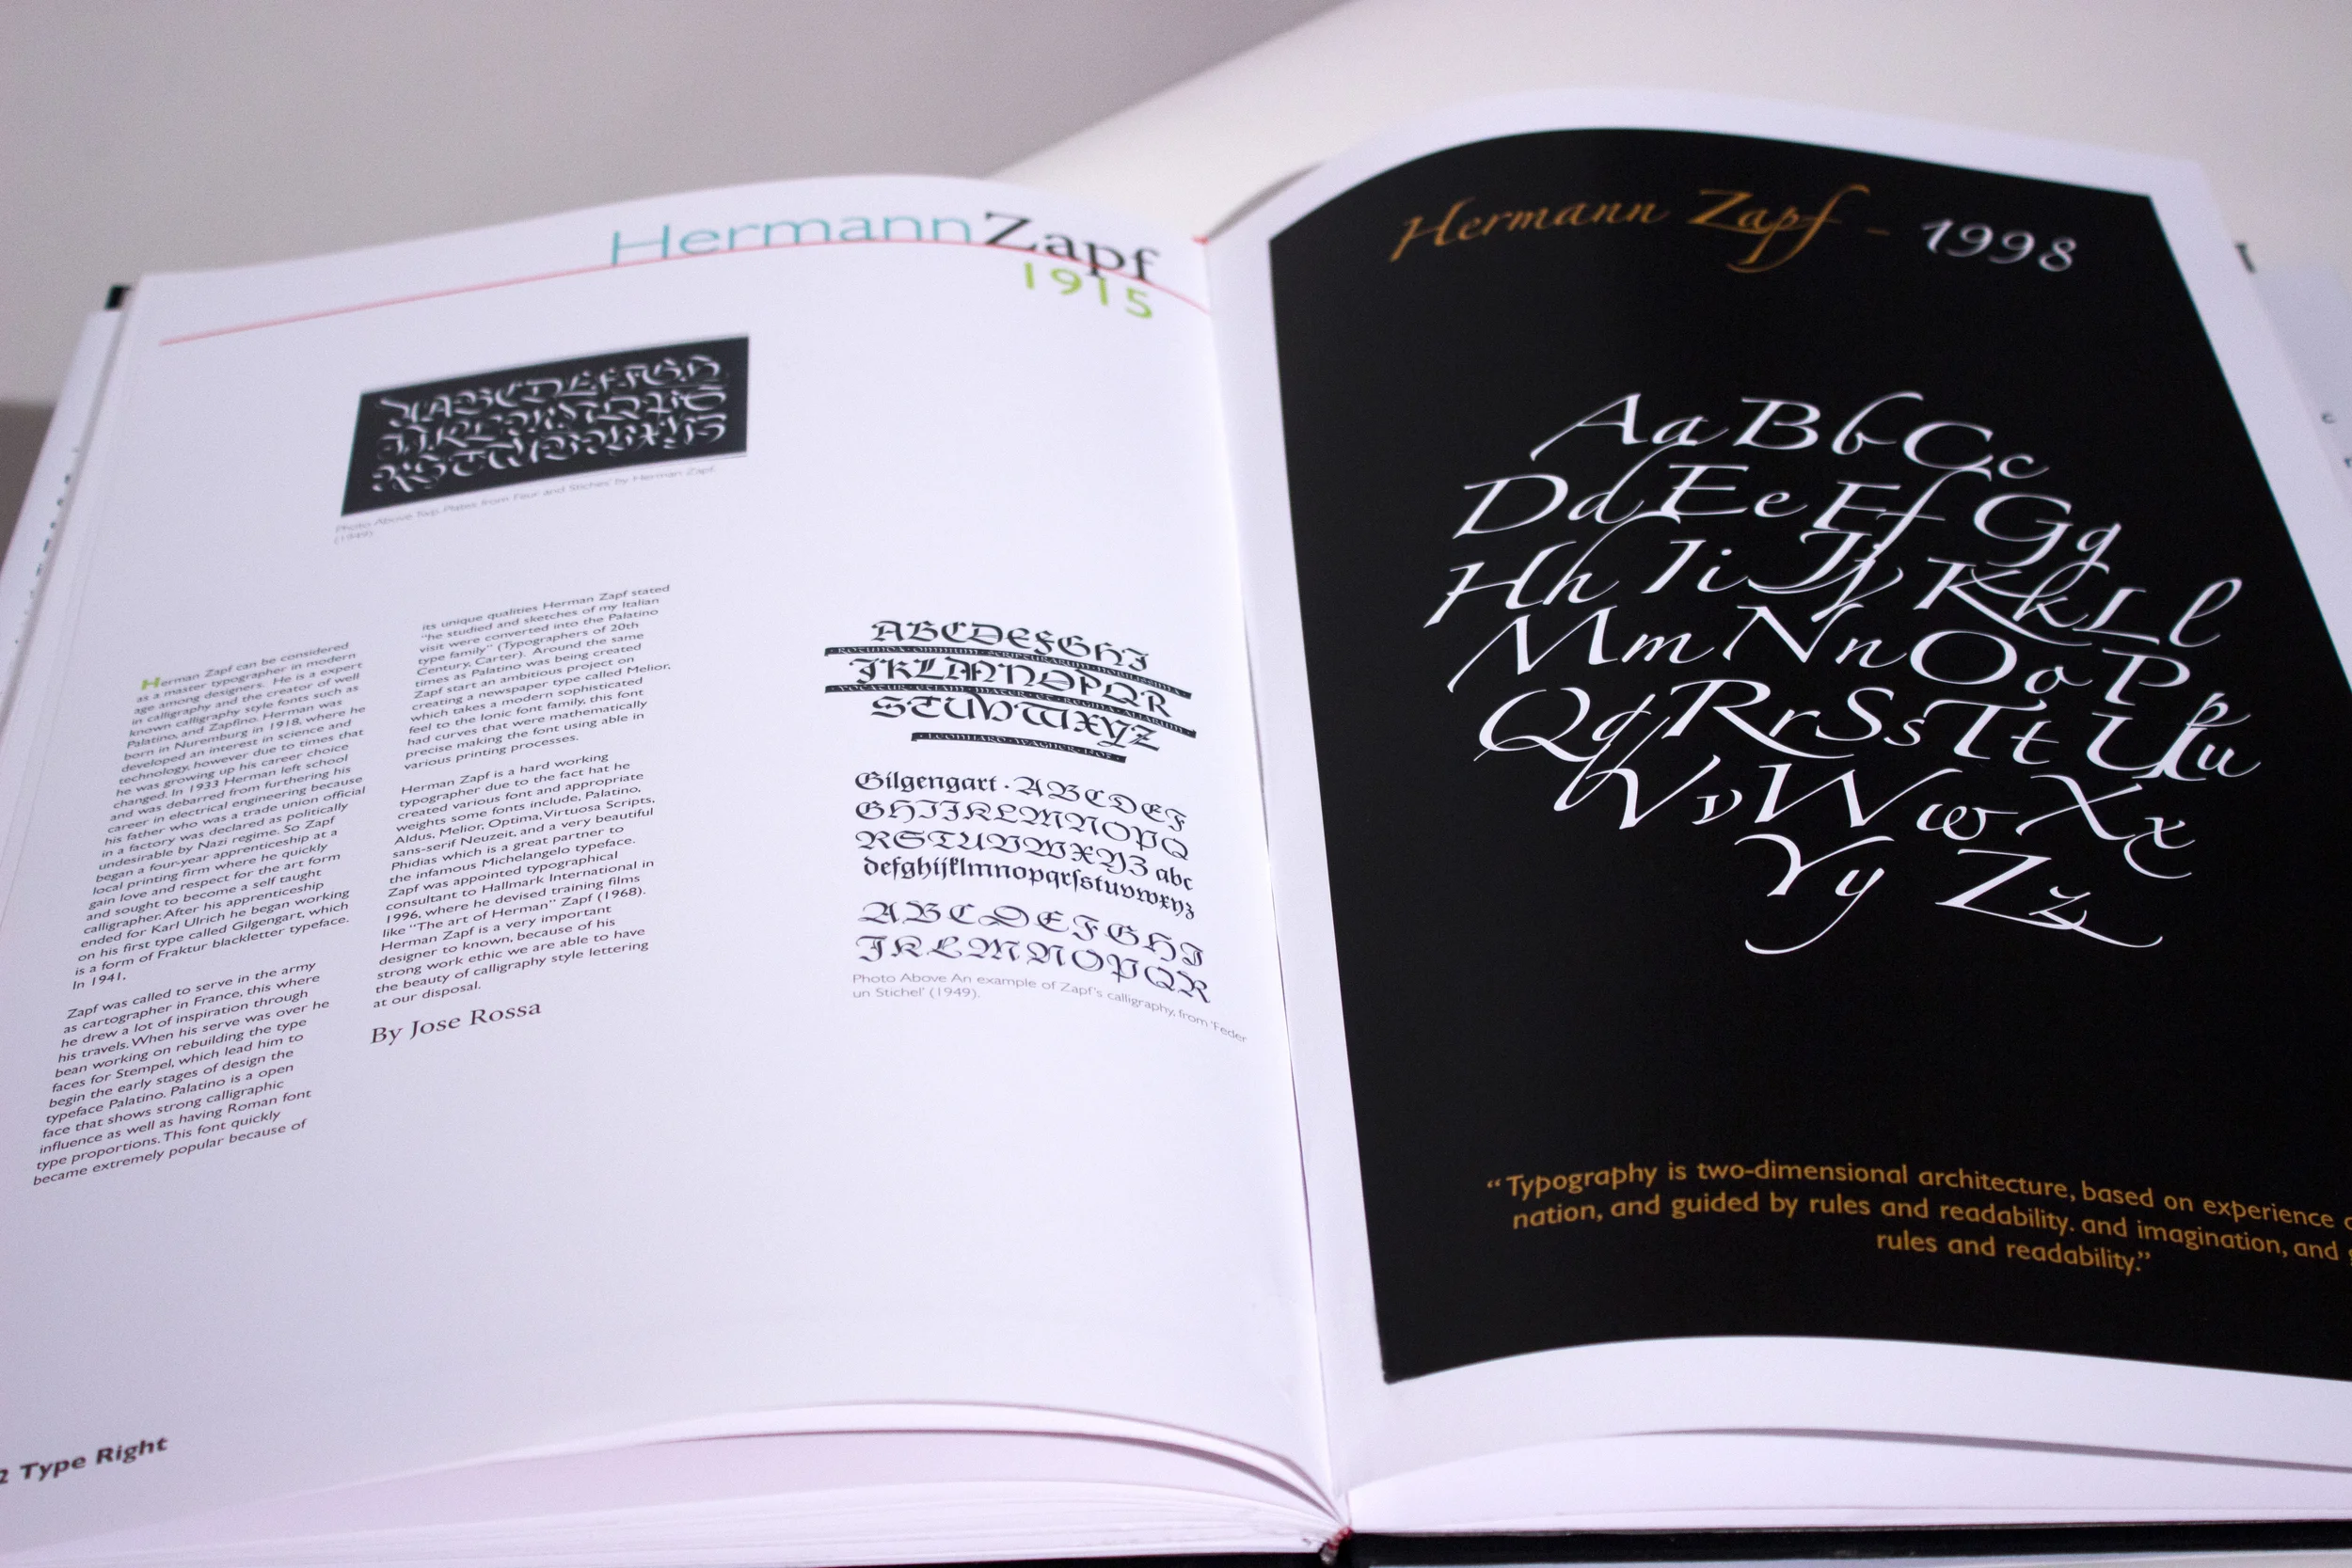 HermannZapf
1915
Photo Above Two Plates from Feur and Stiches' by Herman Zapf.
(1949).
Herman Zapf can be considered
as a master typographer in modern
age among designers. He is a expert
in calligraphy and the creator of well
known calligraphy style fonts such as
Palatino, and Zapfino. Herman was
born in Nuremburg in 1918, where he
developed an interest in science and
technology, however due to times that
he was growing up his career choice
changed. In 1933 Herman left school
and was debarred from furthering his
career in electrical engineering because
his father who was a trade union official
in a factory was declared as politically
undesirable by Nazi regime. So Zapf
began a four-year apprenticeship at a
local printing firm where he quickly
gain love and respect for the art form
and sought to become a self taught
calligrapher. After his apprenticeship
ended for Karl Ulrich he began working
on his first type called Gilgengart, which
is a form of Fraktur blackletter typeface.
In 1941.
Zapf was called to serve in the army
as cartographer in France, this where
he drew a lot of inspiration through
his travels. When his serve was over he
bean working on rebuilding the type
faces for Stempel, which lead him to
begin the early stages of design the
typeface Palatino. Palatino is a open
face that shows strong calligraphic
influence as well as having Roman font
type proportions. This font quickly
became extremely popular because of
its unique qualities Herman Zapf stated
"he studied and sketches of my Italian
visit were converted into the Palatino
type family" (Typographers of 20th
Century, Carter). Around the same
times as Palatino was being created
Zapf start an ambitious project on
creating a newspaper type called Melior,
which takes a modern sophisticated
feel to the Ionic font family, this font
had curves that were mathematically
precise making the font using able in
various printing processes.
Herman Zapf is a hard working
typographer due to the fact hat he
created various font and appropriate
weights some fonts include, Palatino,
Aldus, Melior, Optima, Virtuosa Scripts,
sans-serif Neuzeit, and a very beautiful
Phidias which is a great partner to
the infamous Michelangelo typeface.
Zapf was appointed typographical
consultant to Hallmark International in
1996, where he devised training films
like "The art of Herman" Zapf (1968).
Herman Zapf is a very important
designer to known, because of his
strong work ethic we are able to have
the beauty of calligraphy style lettering
at our disposal.
By Jose Rossa
ABCDEFGHI
ROTUNDA · OMNIUM · SCRIPTURARUM · NOBILISSIMA
JKLMNOPQR
VOCATUR · ETIAM · MATER · ET · REGINA · ALIARUM
STUVWXYZ
LEONHARD · WAGNER
Gilgengart · ABCDEF
GHIJKLMNOPQ
RSTUVWXYZ abc
defghijklmnopqrſstuvwxyz
ABCDEFGHI
JKLMNOPQR
Photo Above An example of Zapf's calligraphy, from 'Feder
un Stichel' (1949).
2 Type Right
Hermann Zapf - 1998
Aa Bb Cc
Dd Ee Ff Gg
Hh Ii Jj Kk Ll
Mm Nn Oo Pp
Qq Rr Ss Tt Uu
Vv Ww Xx
Yy Zz
"Typography is two-dimensional architecture, based on experience
nation, and guided by rules and readability. and imagination, and
rules and readability."